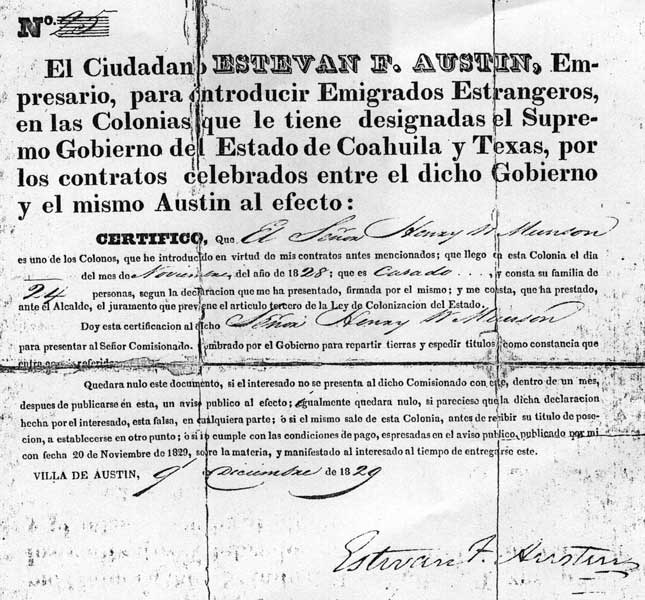 No. 25
El Ciudadano ESTEVAN F. AUSTIN, Em-
presario, para introducir Emigrados Estrangeros,
en las Colonias que le tiene designadas el Supre-
mo Gobierno del Estado de Coahuila y Texas, por
los contratos celebrados entre el dicho Gobierno
y el mismo Austin al efecto:
CERTIFICO, Que El Señor Henry W Munson
es uno de los Colonos, que he introducido en virtud de mis contratos antes mencionados; que llego en esta Colonia el dia
del mes de Noviembre del año de 1828; que es Casado . . . , y consta su familia de
24 personas, segun la declaracion que me ha presentado, firmada por el mismo; y me consta, que ha prestado,
ante el Alcalde, el juramento que previene el articulo tercero de la Ley de Colonizacion del Estado.
Doy esta certificacion al dicho Señor Henry W Munson
para presentar al Señor Comisionado. nombrado por el Gobierno para repartir tierras y espedir titulos, como constancia que
Quedara nulo este documento, si el interesado no se presenta al dicho Comisionado con este, dentro de un mes,
despues de publicarse en esta, un aviso publico al efecto; egualmente quedara nulo, si pareciese que la dicha declaracion
hecha por el interesado, esta falsa, en cualquiera parte; ó si el mismo sale de esta Colonia, antes de recibir su titulo de pose-
cion, a establecerse en otro punto; ó si no cumple con las condiciones de pago, espresadas en el aviso publico, publicado por mi
con fecha 20 de Noviembre de 1829, sobre la materia, y manifestado al interesado al tiempo de entregarle este.
VILLA DE AUSTIN, 9 Diciembre de 1829
Estevan F. Austin